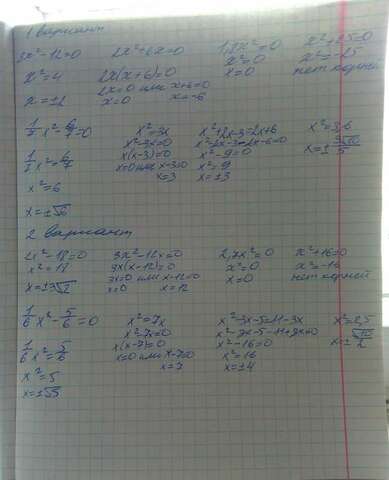 1 вариант
3x²-12=0
x²=4
x=±2
2x²+6x=0
2x(x+6)=0
2x=0 или x+6=0
x=0 x=-6
1,8x²=0
x²=0
x=0
x²+25=0
x²=-25
нет корней
x²=6
x=±√6
x²=3x
x²-3x=0
x(x-3)=0
x=0 или x-3=0
x=3
x²+2x-3=2x+6
x²+2x-3-2x-6=0
x²-9=0
x²=9
x=±3
x²=3,6
2 вариант
2x²-18=0
x²=18
3x²-12x=0
3x(x-12)=0
3x=0 или x-12=0
x=0 x=12
2,7x²=0
x²=0
x=0
x²+16=0
x²=-16
нет корней
1/6 x²-5/6=0
1/6 x²=5/6
x²=5
x=±√5
x²=7x
x²-7x=0
x(x-7)=0
x=0 или x-7=0
x=7
x²-3x-5=11-3x
x²-3x-5-11+3x=0
x²-16=0
x²=16
x=±4
x²=2,5
x=±√10/2